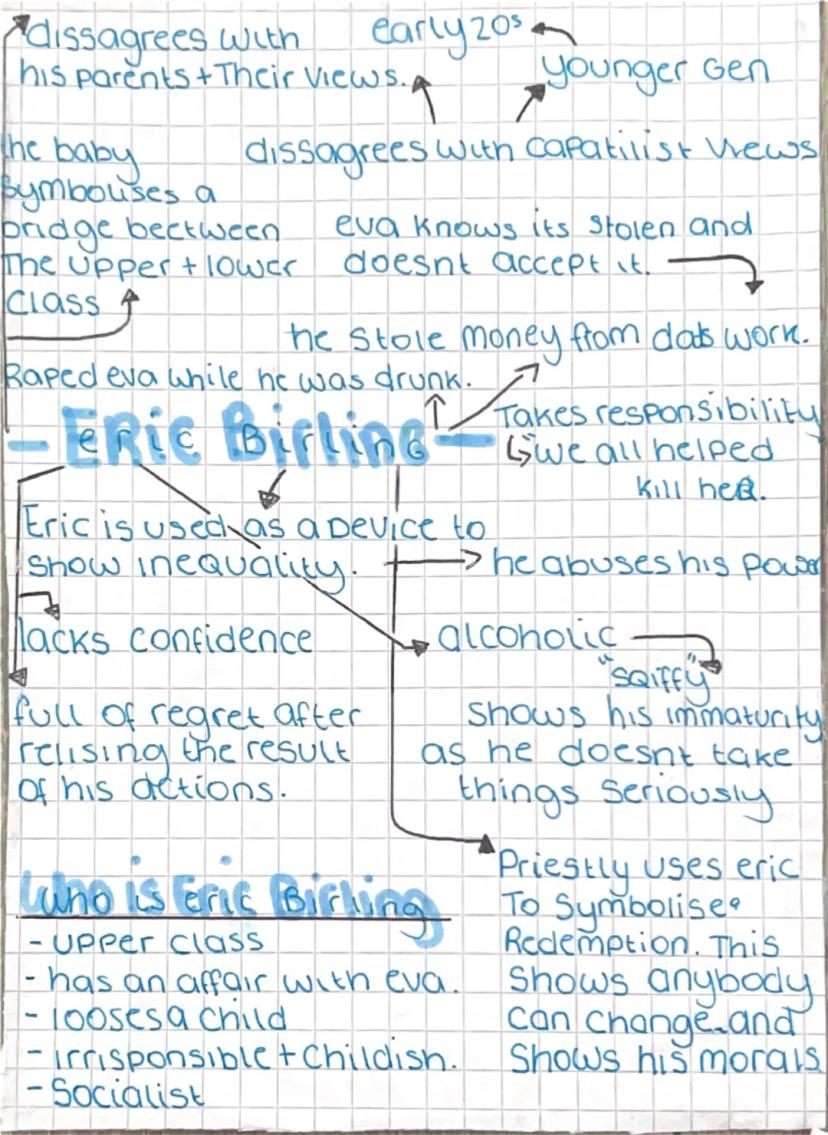 dissagrees with
his parents + Their views.
early 20s
younger Gen
dissagrees with capatilist views
the baby
symbolises a
bridge bectween
The upper + lower
class
eva knows its stolen and
doesnt accept it.
he stole money from dads work.
Raped eva while he was drunk.
- ERic Birling -
Takes responsibility
"we all helped
kill her.
Eric is used as a Device to
show inequality.
he abuses his power
lacks confidence
alcoholic
"sqiffy"
shows his immaturity
as he doesnt take
things seriously
full of regret after
relising the result
of his actions.
Priestly uses eric
To symbolise
Redemption. This
shows anybody
can change and
shows his morals
Who is Eric Birling
- upper class
- has an affair with eva.
- looses a child
- irrisponsible + childish.
- Socialist